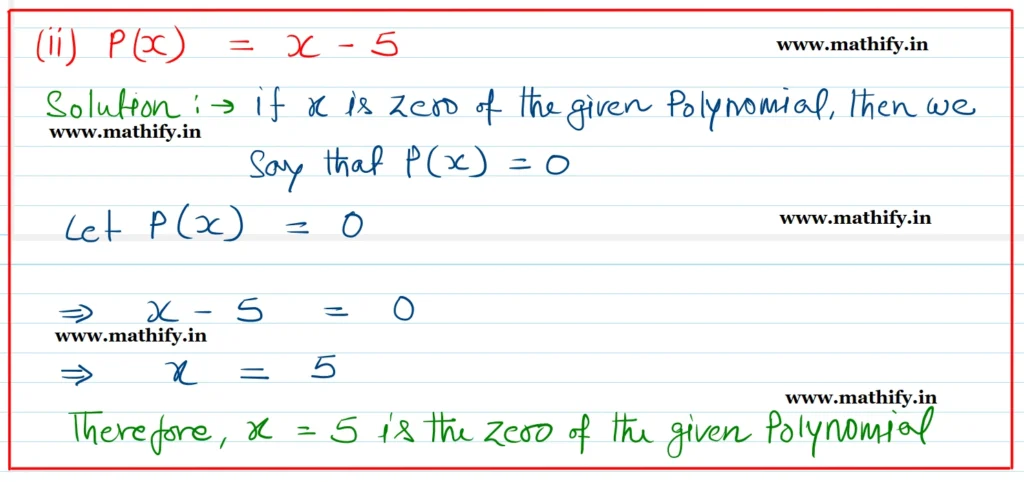 (ii) P(x) = x - 5
www.mathify.in
Solution :→ if x is zero of the given Polynomial, then we
www.mathify.in
say that P(x) = 0
Let P(x) = 0
www.mathify.in
⇒ x - 5 = 0
www.mathify.in
⇒ x = 5
www.mathify.in
Therefore, x = 5 is the zero of the given Polynomial